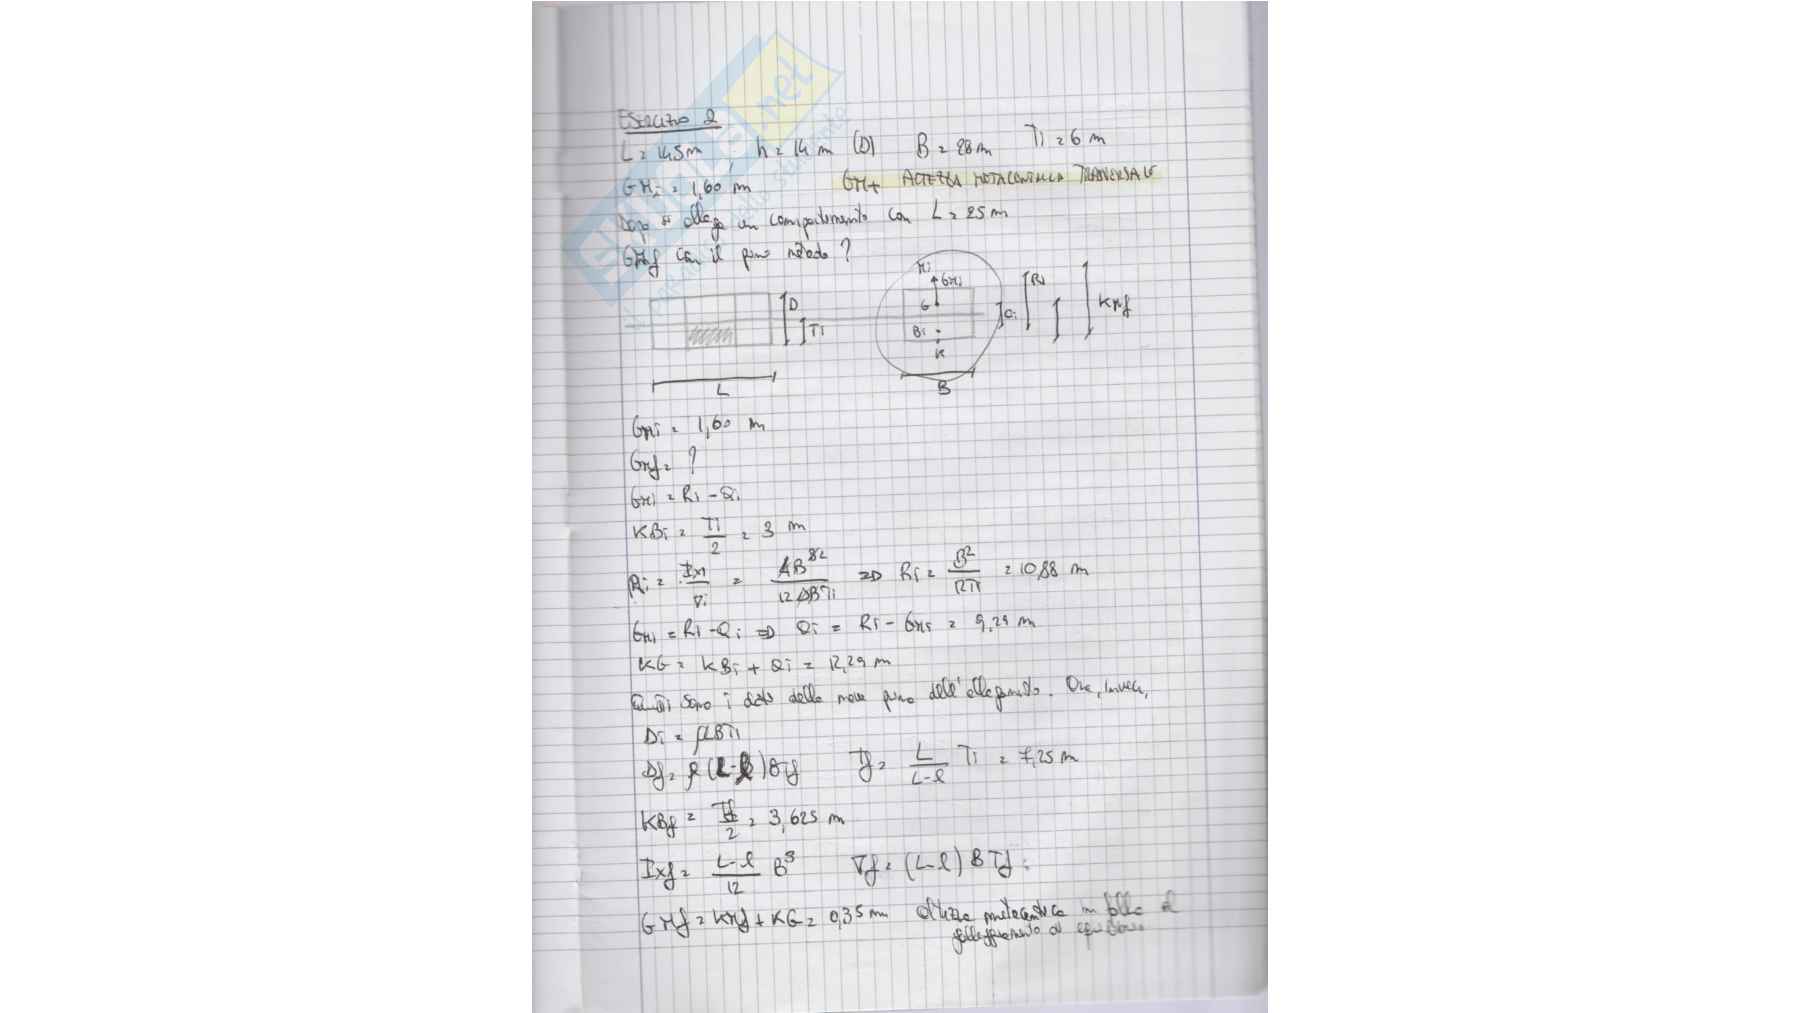 ESERCIZIO 2
L = 145 m , h = 14 m (D) B = 28 m Ti = 6 m
GMi = 1,60 m GMt ALTEZZA METACENTRICA TRASVERSALE
Dopo si allaga un compartimento con L = 25 m
GMf con il primo metodo ?
Mi
GMi
G
Bi
K
D
Ti
Qi
Ri
KMf
L
B
GMi = 1,60 m
GMf = ?
GMi = Ri - Qi
KBi = Ti/2 = 3 m
Ri = Ixi/∇i = AB^2/12 ABTi => Ri = B^2/12Ti = 10,88 m
GMi = Ri - Qi => Qi = Ri - GMi = 9,29 m
KG = KBi + Qi = 12,29 m
Questi sono i dati della nave prima dell'allagamento. Ora, invece,
Di = ρLBTi
Df = ρ(L-l)BTf Tf = L/L-l Ti = 7,25 m
KBf = Tf/2 = 3,625 m
Ixf = L-l/12 B^3 ∇f = (L-l) B Tf
GMf = KMf + KG = 0,35 m altezza metacentrica in
galleggiamento di
SKUOLA.net